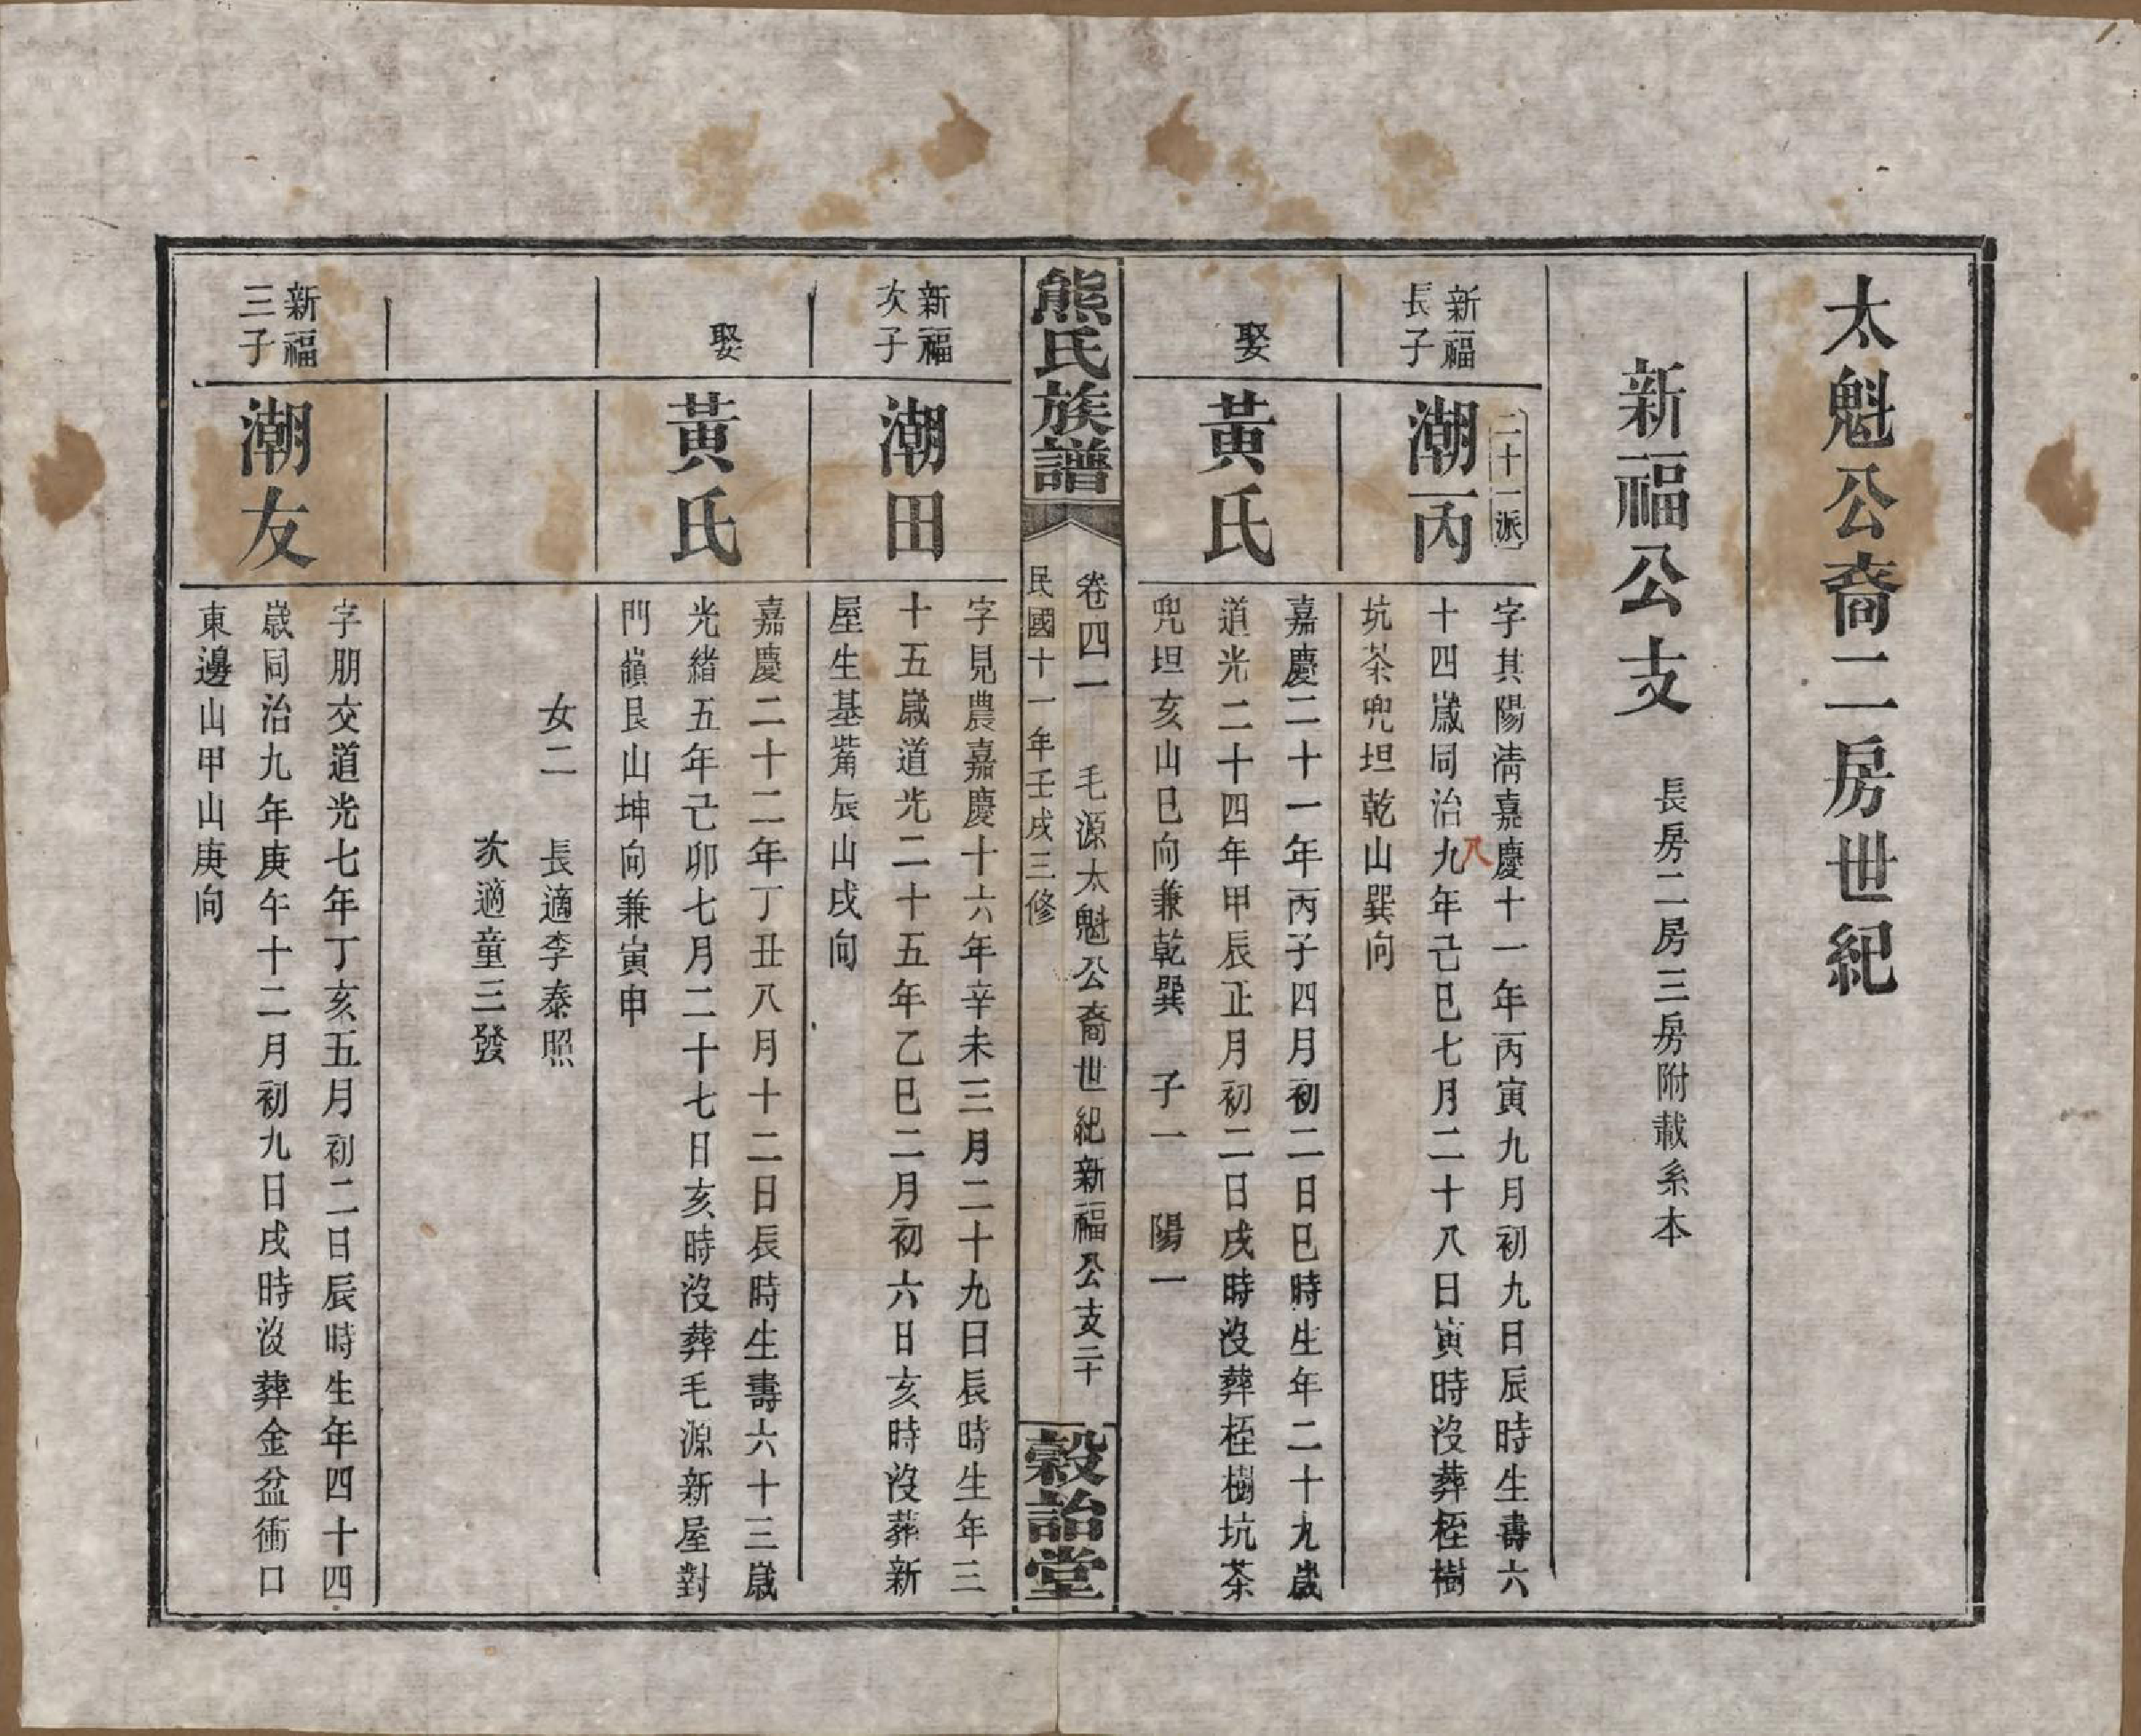 太魁公裔二房世紀
新福公支 長房二房三房附載系本
新福
長子
二十一派
潮丙
字其陽清嘉慶十一年丙寅九月初九日辰時生壽六
八
十四歲同治九年己巳七月二十八日寅時沒葬桎樹
坑茶兜坦乾山巽向
娶
黃氏
嘉慶二十一年丙子四月初二日巳時生年二十九歲
道光二十四年甲辰正月初二日戌時沒葬桎樹坑茶
兜坦亥山巳向兼乾巽 子一 陽一
熊氏族譜
卷四一 毛源太魁公裔世紀新福公支二十
民國十一年壬戌三修
穀詒堂
新福
次子
潮田
字見農嘉慶十六年辛未三月二十九日辰時生年三
十五歲道光二十五年乙巳二月初六日亥時沒葬新
屋生基嘴辰山戌向
娶
黃氏
嘉慶二十二年丁丑八月十二日辰時生壽六十三歲
光緒五年己卯七月二十七日亥時沒葬毛源新屋對
門嶺艮山坤向兼寅申
女二 長適李泰照
次適童三發
新福
三子
潮友
字朋交道光七年丁亥五月初二日辰時生年四十四
歲同治九年庚午十二月初九日戌時沒葬金盆衕口
東邊山甲山庚向